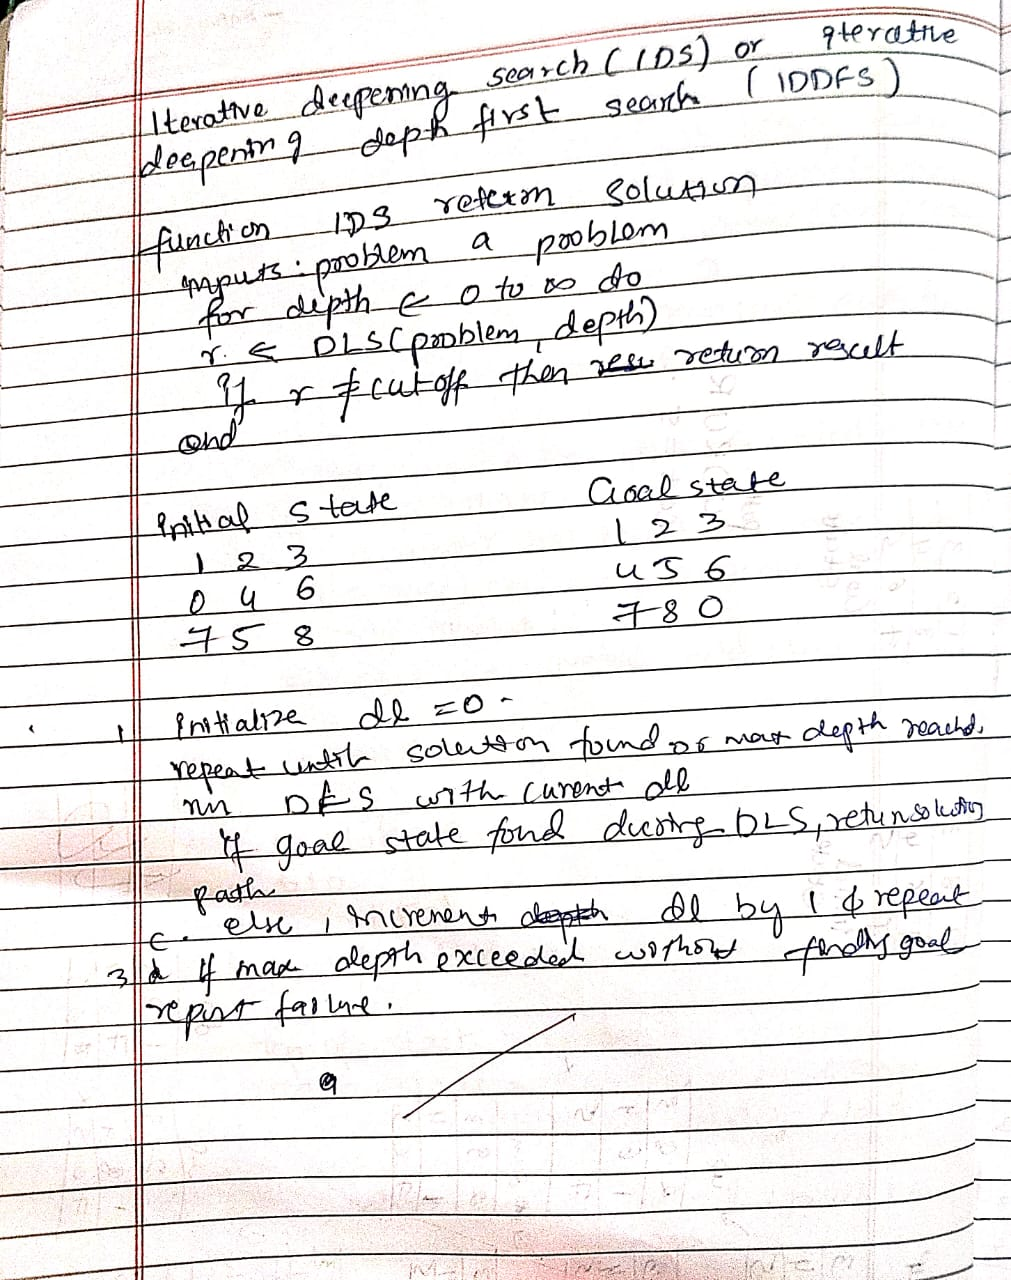 Iterative deepening search (IDS) or iterative
deepening depth first search (IDDFS)
function IDS return solution
inputs: problem a problem
for depth ← 0 to ∞ do
r ← DLS(problem, depth)
if r ≠ cutoff then return result
end
Initial State Goal state
1 2 3 1 2 3
0 4 6 4 5 6
7 5 8 7 8 0
1 Initialize dl = 0
repeat until solution found or max depth reachd.
run DFS with curent dl
If goal state fond during DLS, retun solution
path
c. else, increment dl by 1 & repeat
3 If max depth exceeded without goal
report failure.
9